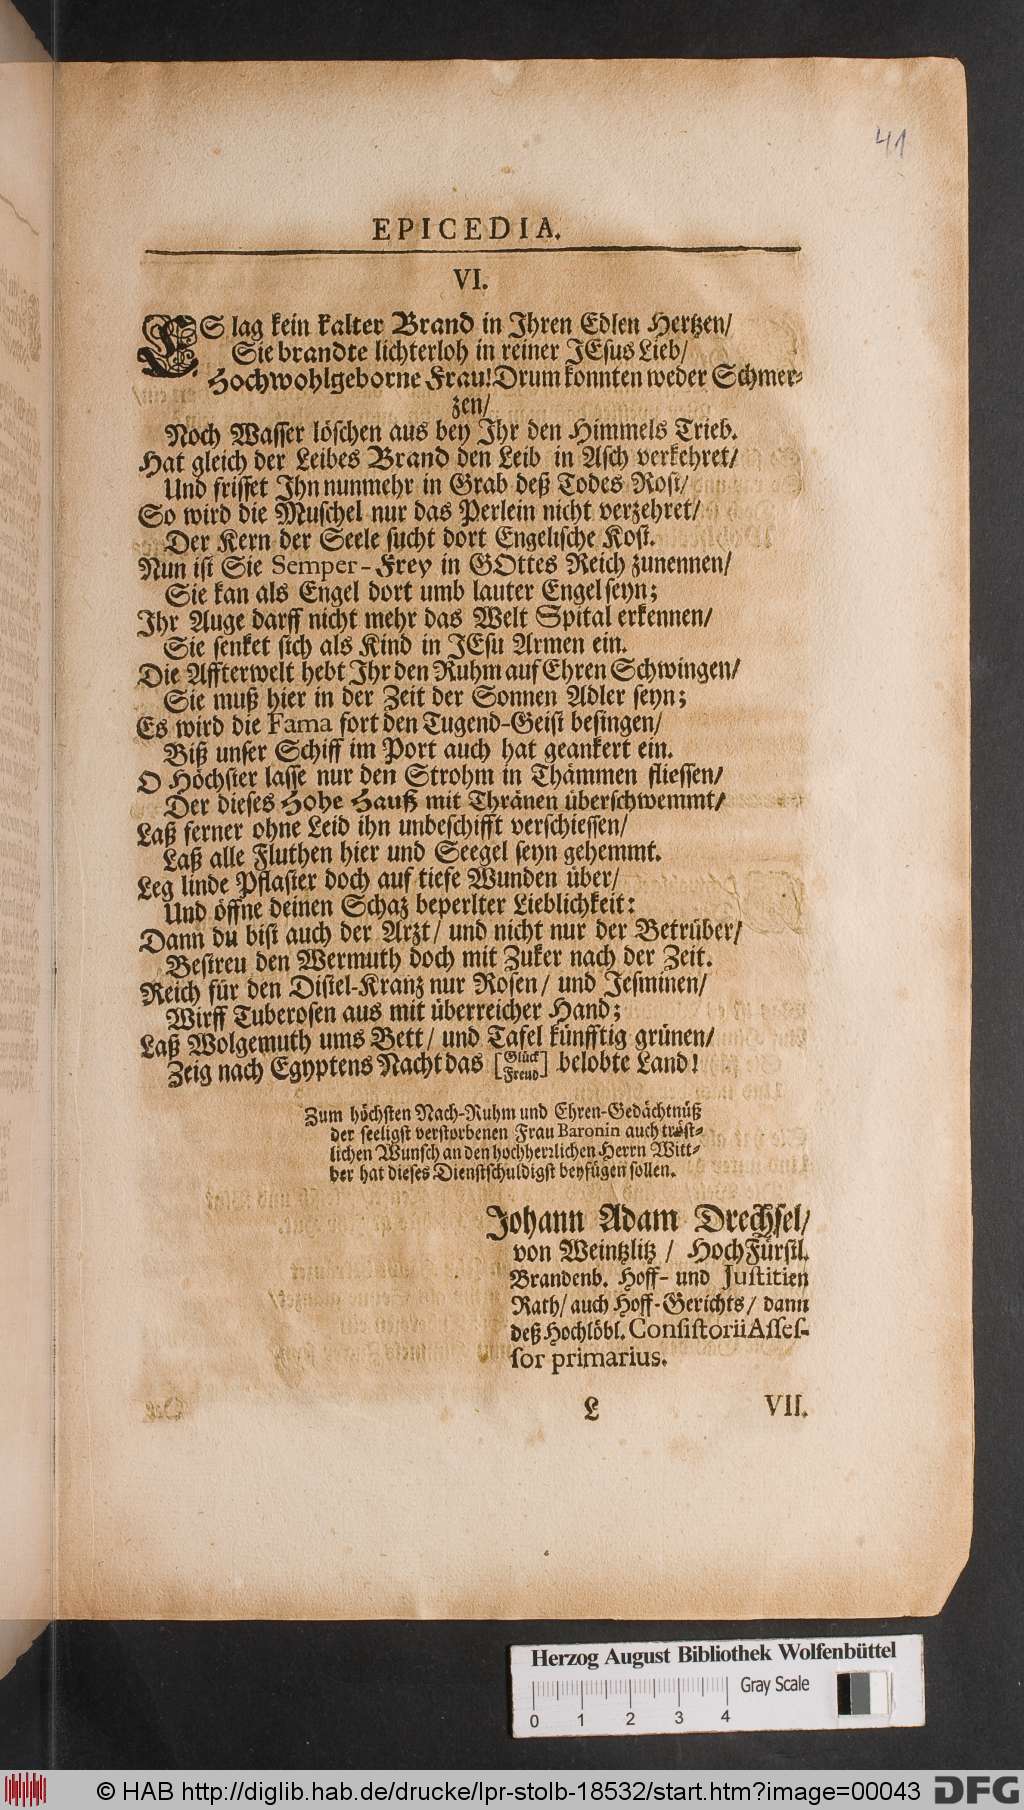 41
EPICEDIA.
VI.
ES lag kein kalter Brand in Ihren Edlen Hertzen/
Sie brandte lichterloh in reiner JEsus Lieb/
Hochwohlgeborne Frau! Drum konnten weder Schmer-
zen/
Noch Wasser löschen aus bey Ihr den Himmels Trieb.
Hat gleich der Leibes Brand den Leib in Asch verkehret/
Und frisset Ihn nunmehr in Grab deß Todes Rost/
So wird die Muschel nur das Perlein nicht verzehret/
Der Kern der Seele sucht dort Englische Kost.
Nun ist Sie Semper-Frey in GOttes Reich zunennen/
Sie kan als Engel dort umb lauter Engel seyn;
Ihr Auge darff nicht mehr das Welt Spital erkennen/
Sie senket sich als Kind in JEsu Armen ein.
Die Affterwelt hebt Ihr den Ruhm auf Ehren Schwingen/
Sie muß hier in der Zeit der Sonnen Adler seyn;
Es wird die Fama fort den Tugend-Geist besingen/
Biß unser Schiff im Port auch hat geankert ein.
O Höchster lasse nur den Strohm in Thämmen fliessen/
Der dieses Hohe Hauß mit Thränen überschwemmt/
Laß ferner ohne Leid ihn unbeschifft verschiessen/
Laß alle Fluthen hier und Seegel seyn gehemmt.
Leg linde Pflaster doch auf tiefe Wunden über/
Und öffne deinen Schaz beperlter Lieblichkeit:
Dann du bist auch der Arzt/ und nicht nur der Betrüber/
Bestreu den Wermuth doch mit Zuker nach der Zeit.
Reich für den Distel-Kranz nur Rosen/ und Jesminen/
Wirff Tuberosen aus mit überreicher Hand;
Laß Wolgemuth ums Bett/ und Tafel künfftig grünen/
Zeig nach Egyptens Nacht das [Glück Freud] belobte Land!
Zum höchsten Nach-Ruhm und Ehren-Gedächtnüß
der seeligst verstorbenen Frau Baronin auch tröst-
lichen Wunsch an den hochherrlichen Herrn Witt-
ber hat dieses Dienstschuldigst beyfügen sollen.
Johann Adam Drechsel/
von Weintzlitz / HochFürstl.
Brandenb. Hoff- und Justitien
Rath/ auch Hoff-Gerichts/ dann
deß Hochlöbl. Consistorii Asses-
sor primarius.
L VII.
Herzog August Bibliothek Wolfenbüttel
Gray Scale
0 1 2 3 4
© HAB http://diglib.hab.de/drucke/lpr-stolb-18532/start.htm?image=00043
DFG